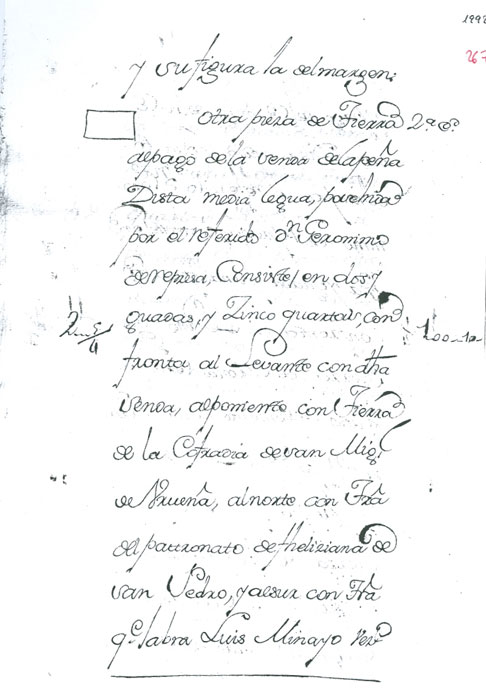 1998
267
y su figura la del margen:
otra pieza de Tierra 2ª cª
al pago de la senda de la peña
Dista media legua, posehida
por el referido Dn Geronimo
de represa, Consiste, en dos y
guadas, y Zinco quartas, con
2 y 5/4
fronta al Levante con dha
senda, al poniente con Tierra
de la Cofradia de san Migl
de Urueña, al norte con Trâ
del patronato de Feliziana de
san Pedro, y al sur con Tra
qe labra Luis Minayo Vezº